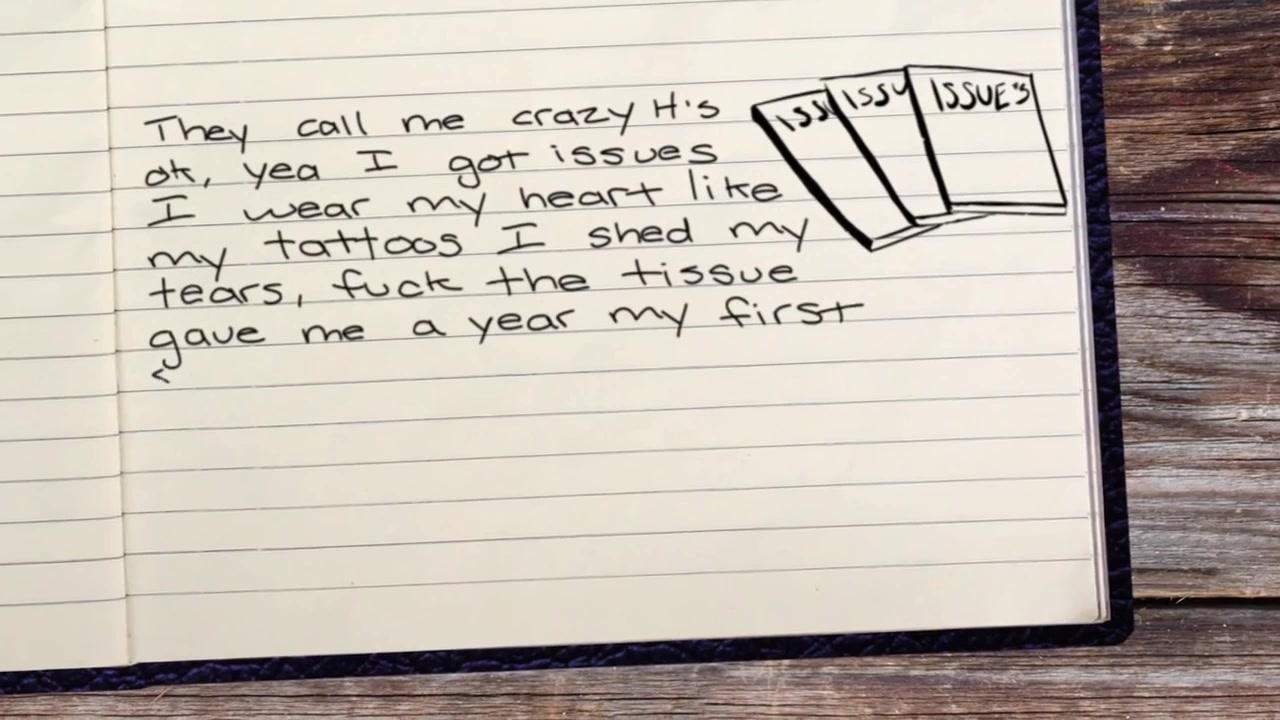 They call me crazy it's
ok, yea I got issues
I wear my heart like
my tattoos I shed my
tears, fuck the tissue
gave me a year my first
ISSU
ISSU
ISSUE'S